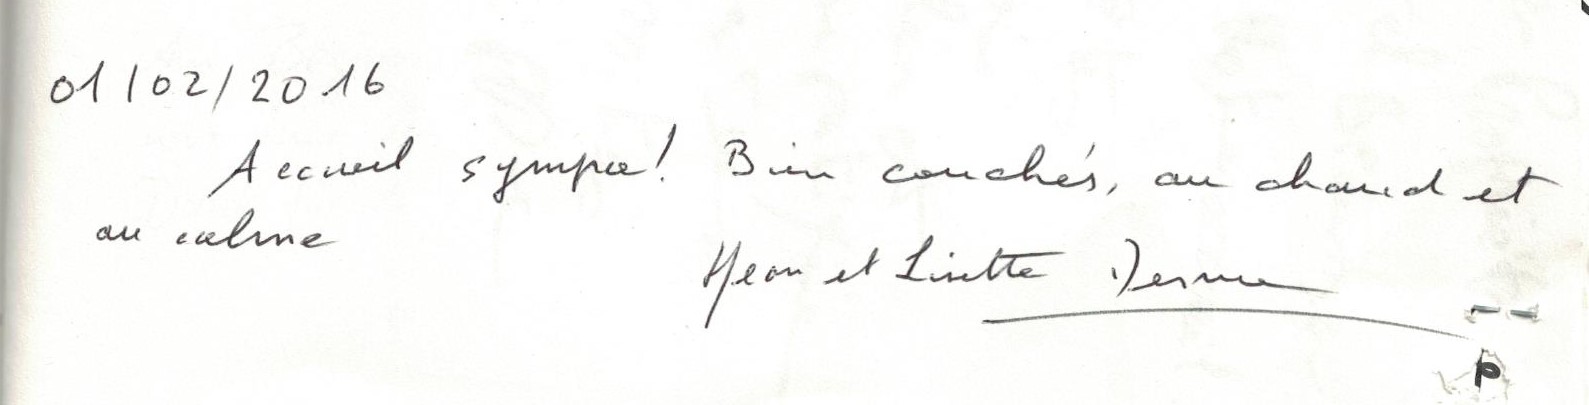 01/02/2016
Accueil sympa! Bien couchés, au chaud et
au calme
Jean et Lisette